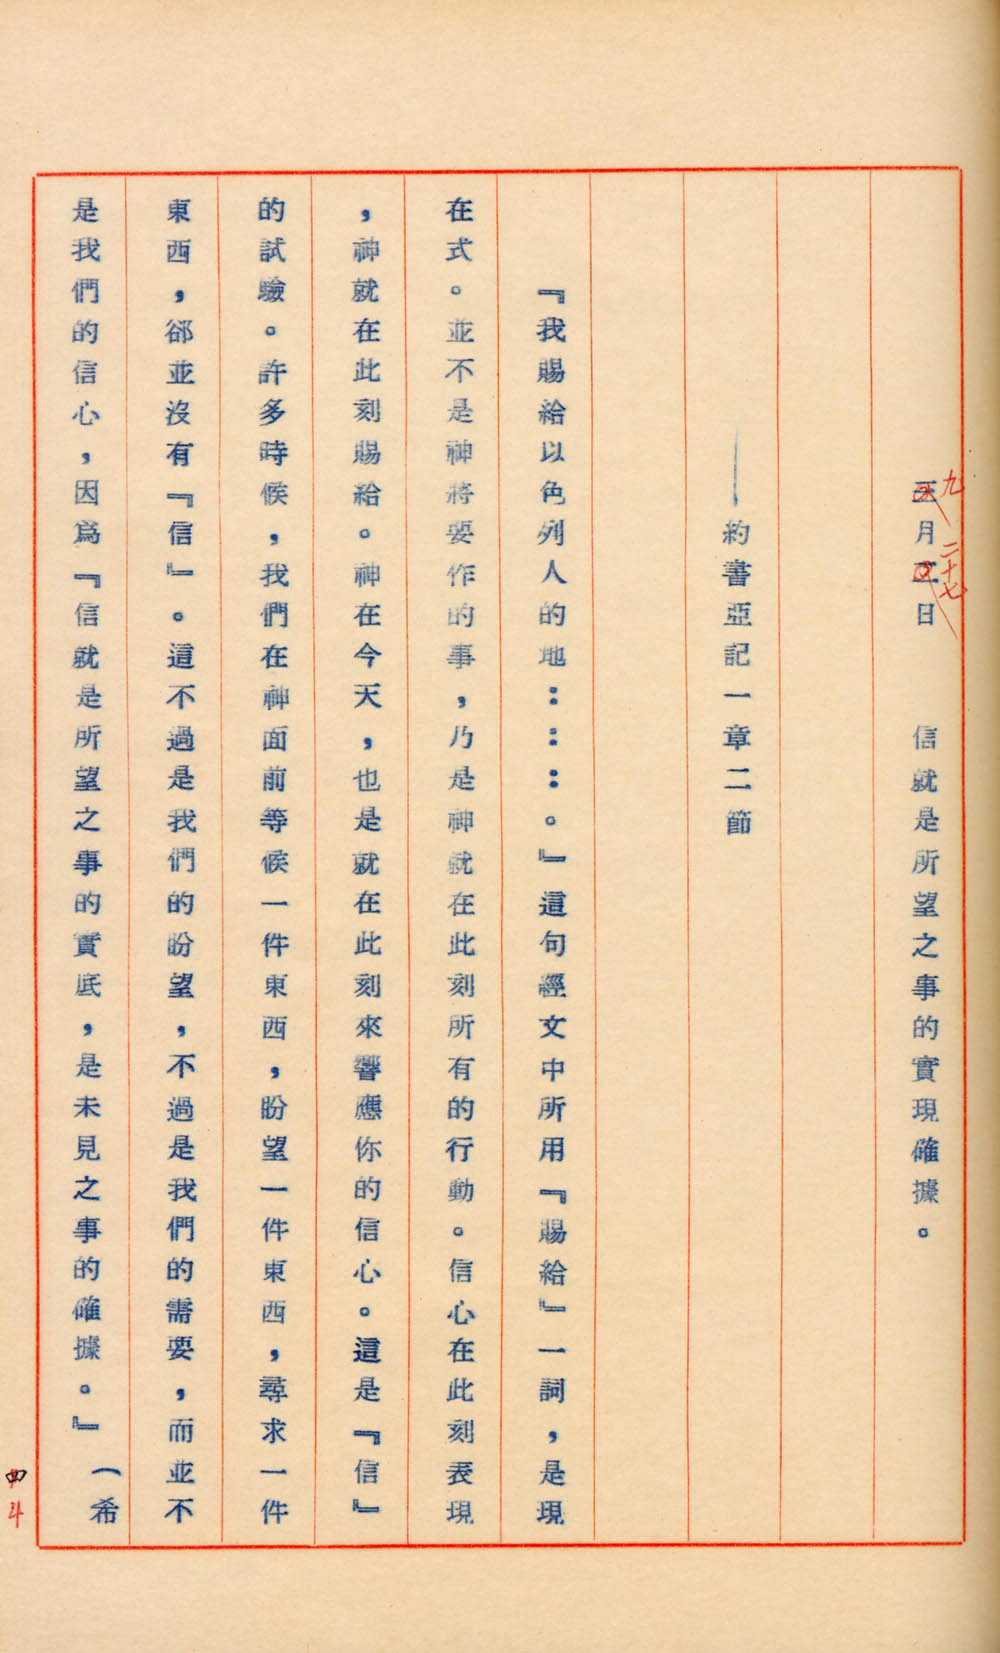 三月三日　信就是所望之事的實現確據。
九 二十七
——約書亞記一章二節
『我賜給以色列人的地：：：。』這句經文中所用『賜給』一詞，是現
在式。並不是神將要作的事，乃是神就在此刻所有的行動。信心在此刻表現
，神就在此刻賜給。神在今天，也是就在此刻來響應你的信心。這是『信』
的試驗。許多時候，我們在神面前等候一件東西，盼望一件東西，尋求一件
東西，郤並沒有『信』。這不過是我們的盼望，不過是我們的需要，而並不
是我們的信心，因爲『信就是所望之事的實底，是未見之事的確據。』（希